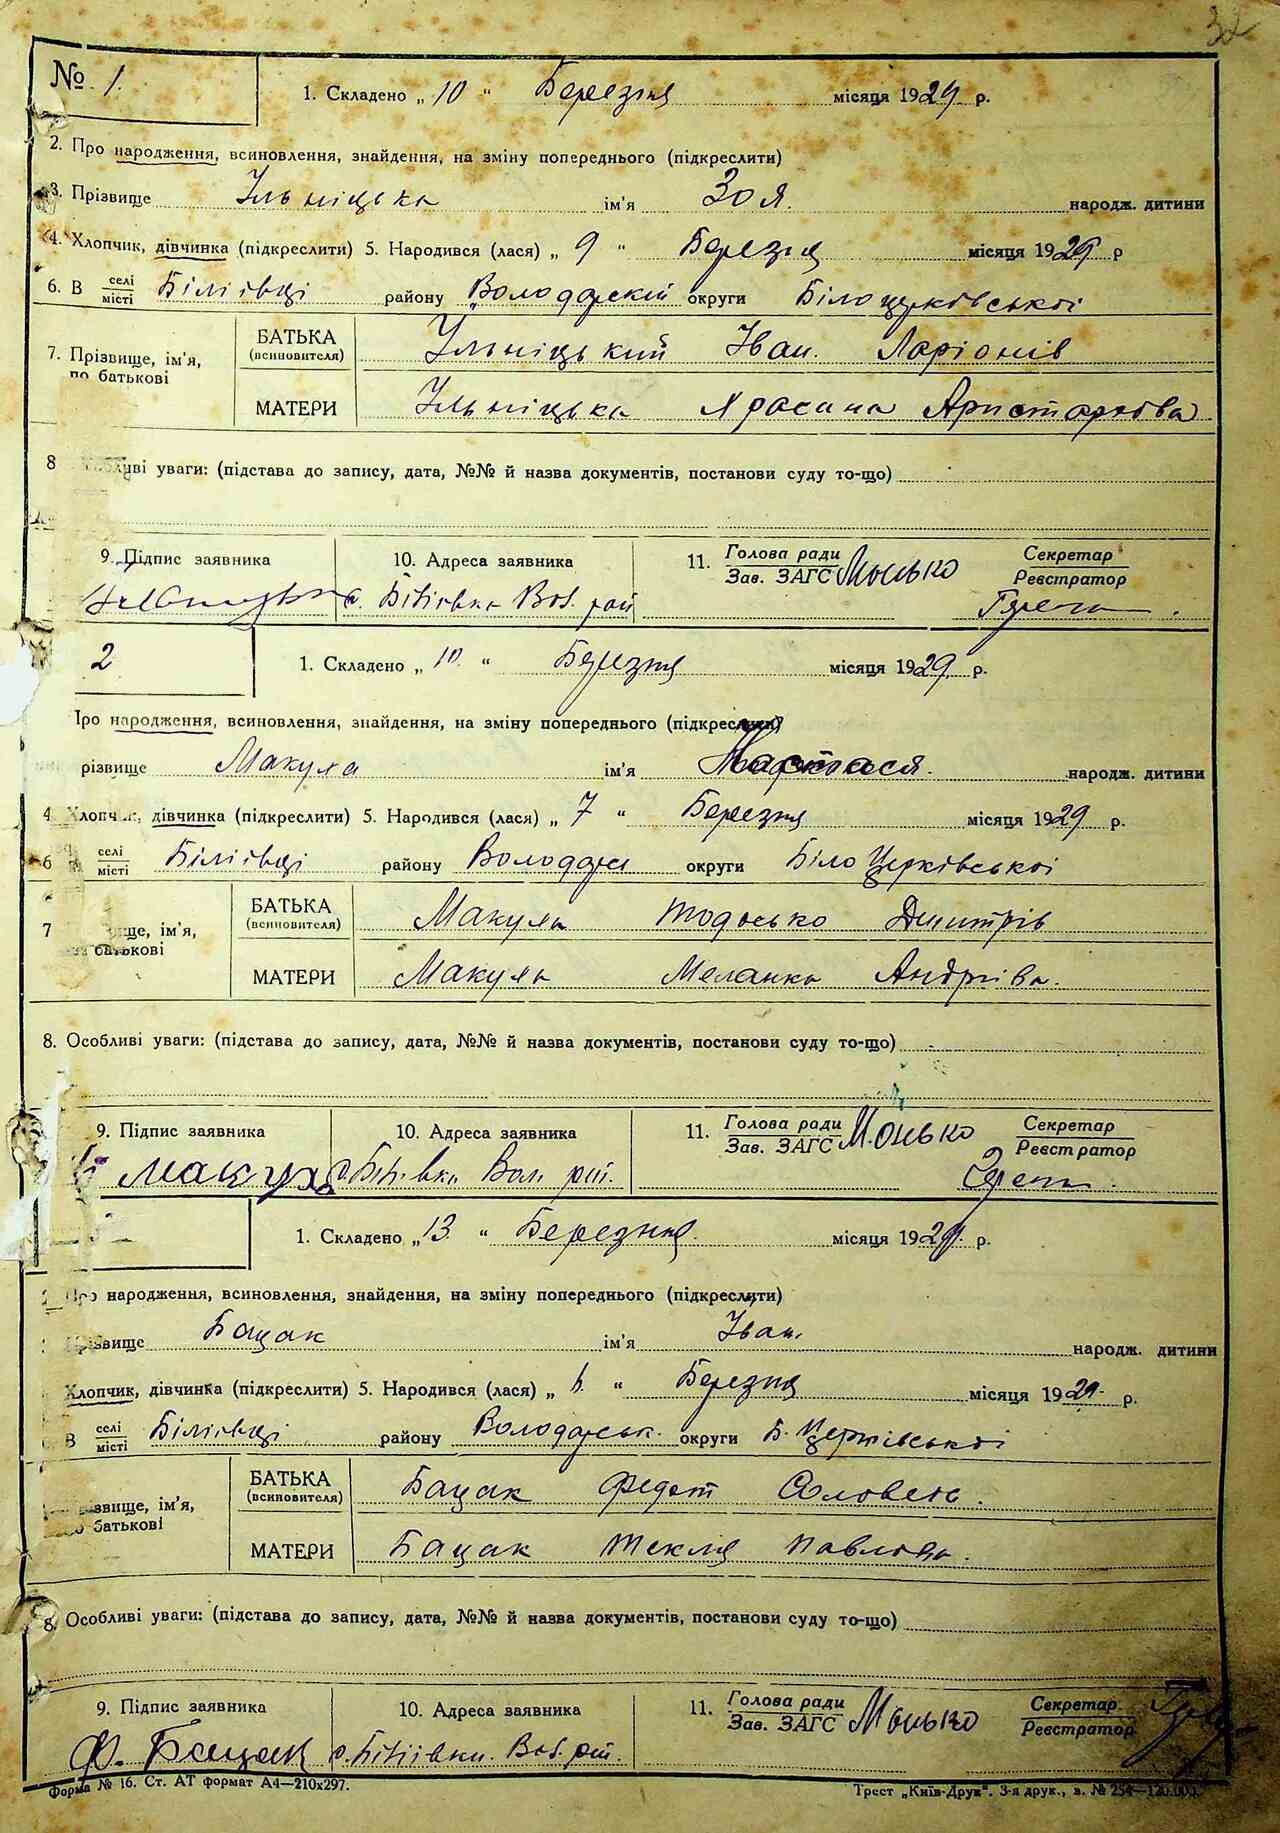 32
№ 1.
1. Складено „ 10 “ Березня місяця 1929 р.
2. Про народження, всиновлення, знайдення, на зміну попереднього (підкреслити)
3. Прізвище Ільніцька ім'я Зоя. народж. дитини
4. Хлопчик, дівчинка (підкреслити) 5. Народився (лася) „ 9 “ Березня місяця 1929 р
6. В селі місті Біліївці району Володарскій округи Білоцерківськоі
7. Прізвище, ім'я, по батькові
БАТЬКА (всиновителя) Ільніцький Іван. Ларіонів
МАТЕРИ Ільніцька Аристархова
8 уваги: (підстава до запису, дата, №№ й назва документів, постанови суду то-що)
9. Підпис заявника 10. Адреса заявника 11. Голова ради Зав. ЗАГС Монько Секретар Реєстратор
с. Біліівка Вол. рай
2
1. Складено „ 10. “ Березня місяця 1929. р.
Про народження, всиновлення, знайдення, на зміну попереднього (підкреслити)
різвище Макуха ім'я народж. дитини
4 Хлопчик, дівчинка (підкреслити) 5. Народився (лася) „ 7 “ Березня місяця 1929 р.
6 селі місті Біліівці району Володарс округи Біло Церківськоі
7 ім'я, батькові
БАТЬКА (всиновителя) Макуха Тодосько Дмитрів
МАТЕРИ Макуха Меланка Андріівна.
8. Особливі уваги: (підстава до запису, дата, №№ й назва документів, постанови суду то-що)
9. Підпис заявника 10. Адреса заявника 11. Голова ради Зав. ЗАГС Монько Секретар Реєстратор
Макуха с. Біліівка Вол. рай.
1. Складено „ 13. “ Березня. місяця 1929. р.
Про народження, всиновлення, знайдення, на зміну попереднього (підкреслити)
Прізвище Бацак ім'я Іван. народж. дитини
Хлопчик, дівчинка (підкреслити) 5. Народився (лася) „ “ Березня місяця 1929. р.
В селі місті Біліівці району Володарськ. округи Б. Церківськоі
ім'я, батькові
БАТЬКА (всиновителя) Бацак Федот
МАТЕРИ Бацак Текля Павлова.
8. Особливі уваги: (підстава до запису, дата, №№ й назва документів, постанови суду то-що)
9. Підпис заявника 10. Адреса заявника 11. Голова ради Зав. ЗАГС Монько Секретар Реєстратор
Ф. Бацак с. Біліівки. Вол. рай.
Форма № 16. Ст. АТ формат А4—210х297.
Трест „Київ-Друк“. 3-я друк., з. № 254—120.000.